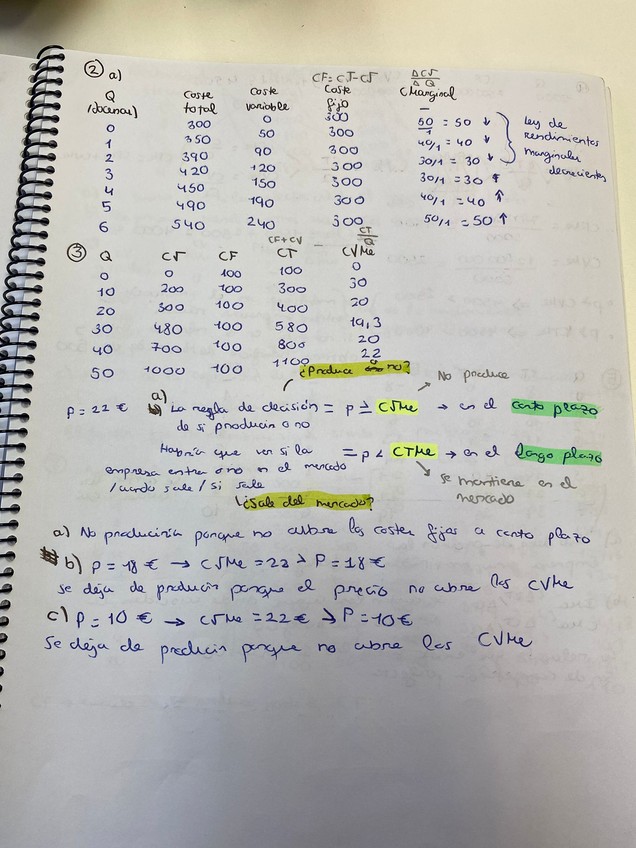 ② a) CF = CT-CV ΔCV/ΔQ
Q (docenas) Coste total Coste variable Coste fijo C Marginal
0 300 0 300 -
1 350 50 300 50/1 = 50 ↓
2 390 90 300 40/1 = 40 ↓
3 420 120 300 30/1 = 30 ↓
4 450 150 300 30/1 = 30 ↑
5 490 190 300 40/1 = 40 ↑
6 540 240 300 50/1 = 50 ↑
ley de
rendimientos
marginales
decrecientes
CF+CV CT/Q
③ Q CV CF CT CVMe
0 0 100 100 0
10 200 100 300 30
20 300 100 400 20
30 480 100 580 19,3
40 700 100 800 20
50 1000 100 1100 22
¿Produce o no?
No produce
a)
P = 22 € La regla de decisión = p ≥ CVMe → en el corto plazo
de si producir o no
Habría que ver si la = p < CTMe → en el largo plazo
empresa entra o no en el mercado
/cuando sale / si sale
se mantiene en el
mercado
¿Sale del mercado?
a) No produciría porque no cubre los costes fijos a corto plazo
b) P = 18 € → CVMe = 22 > P = 18 €
Se deja de producir porque el precio no cubre los CVMe
c) P = 10 € → CVMe = 22 € > P = 10 €
Se deja de producir porque no cubre los CVMe